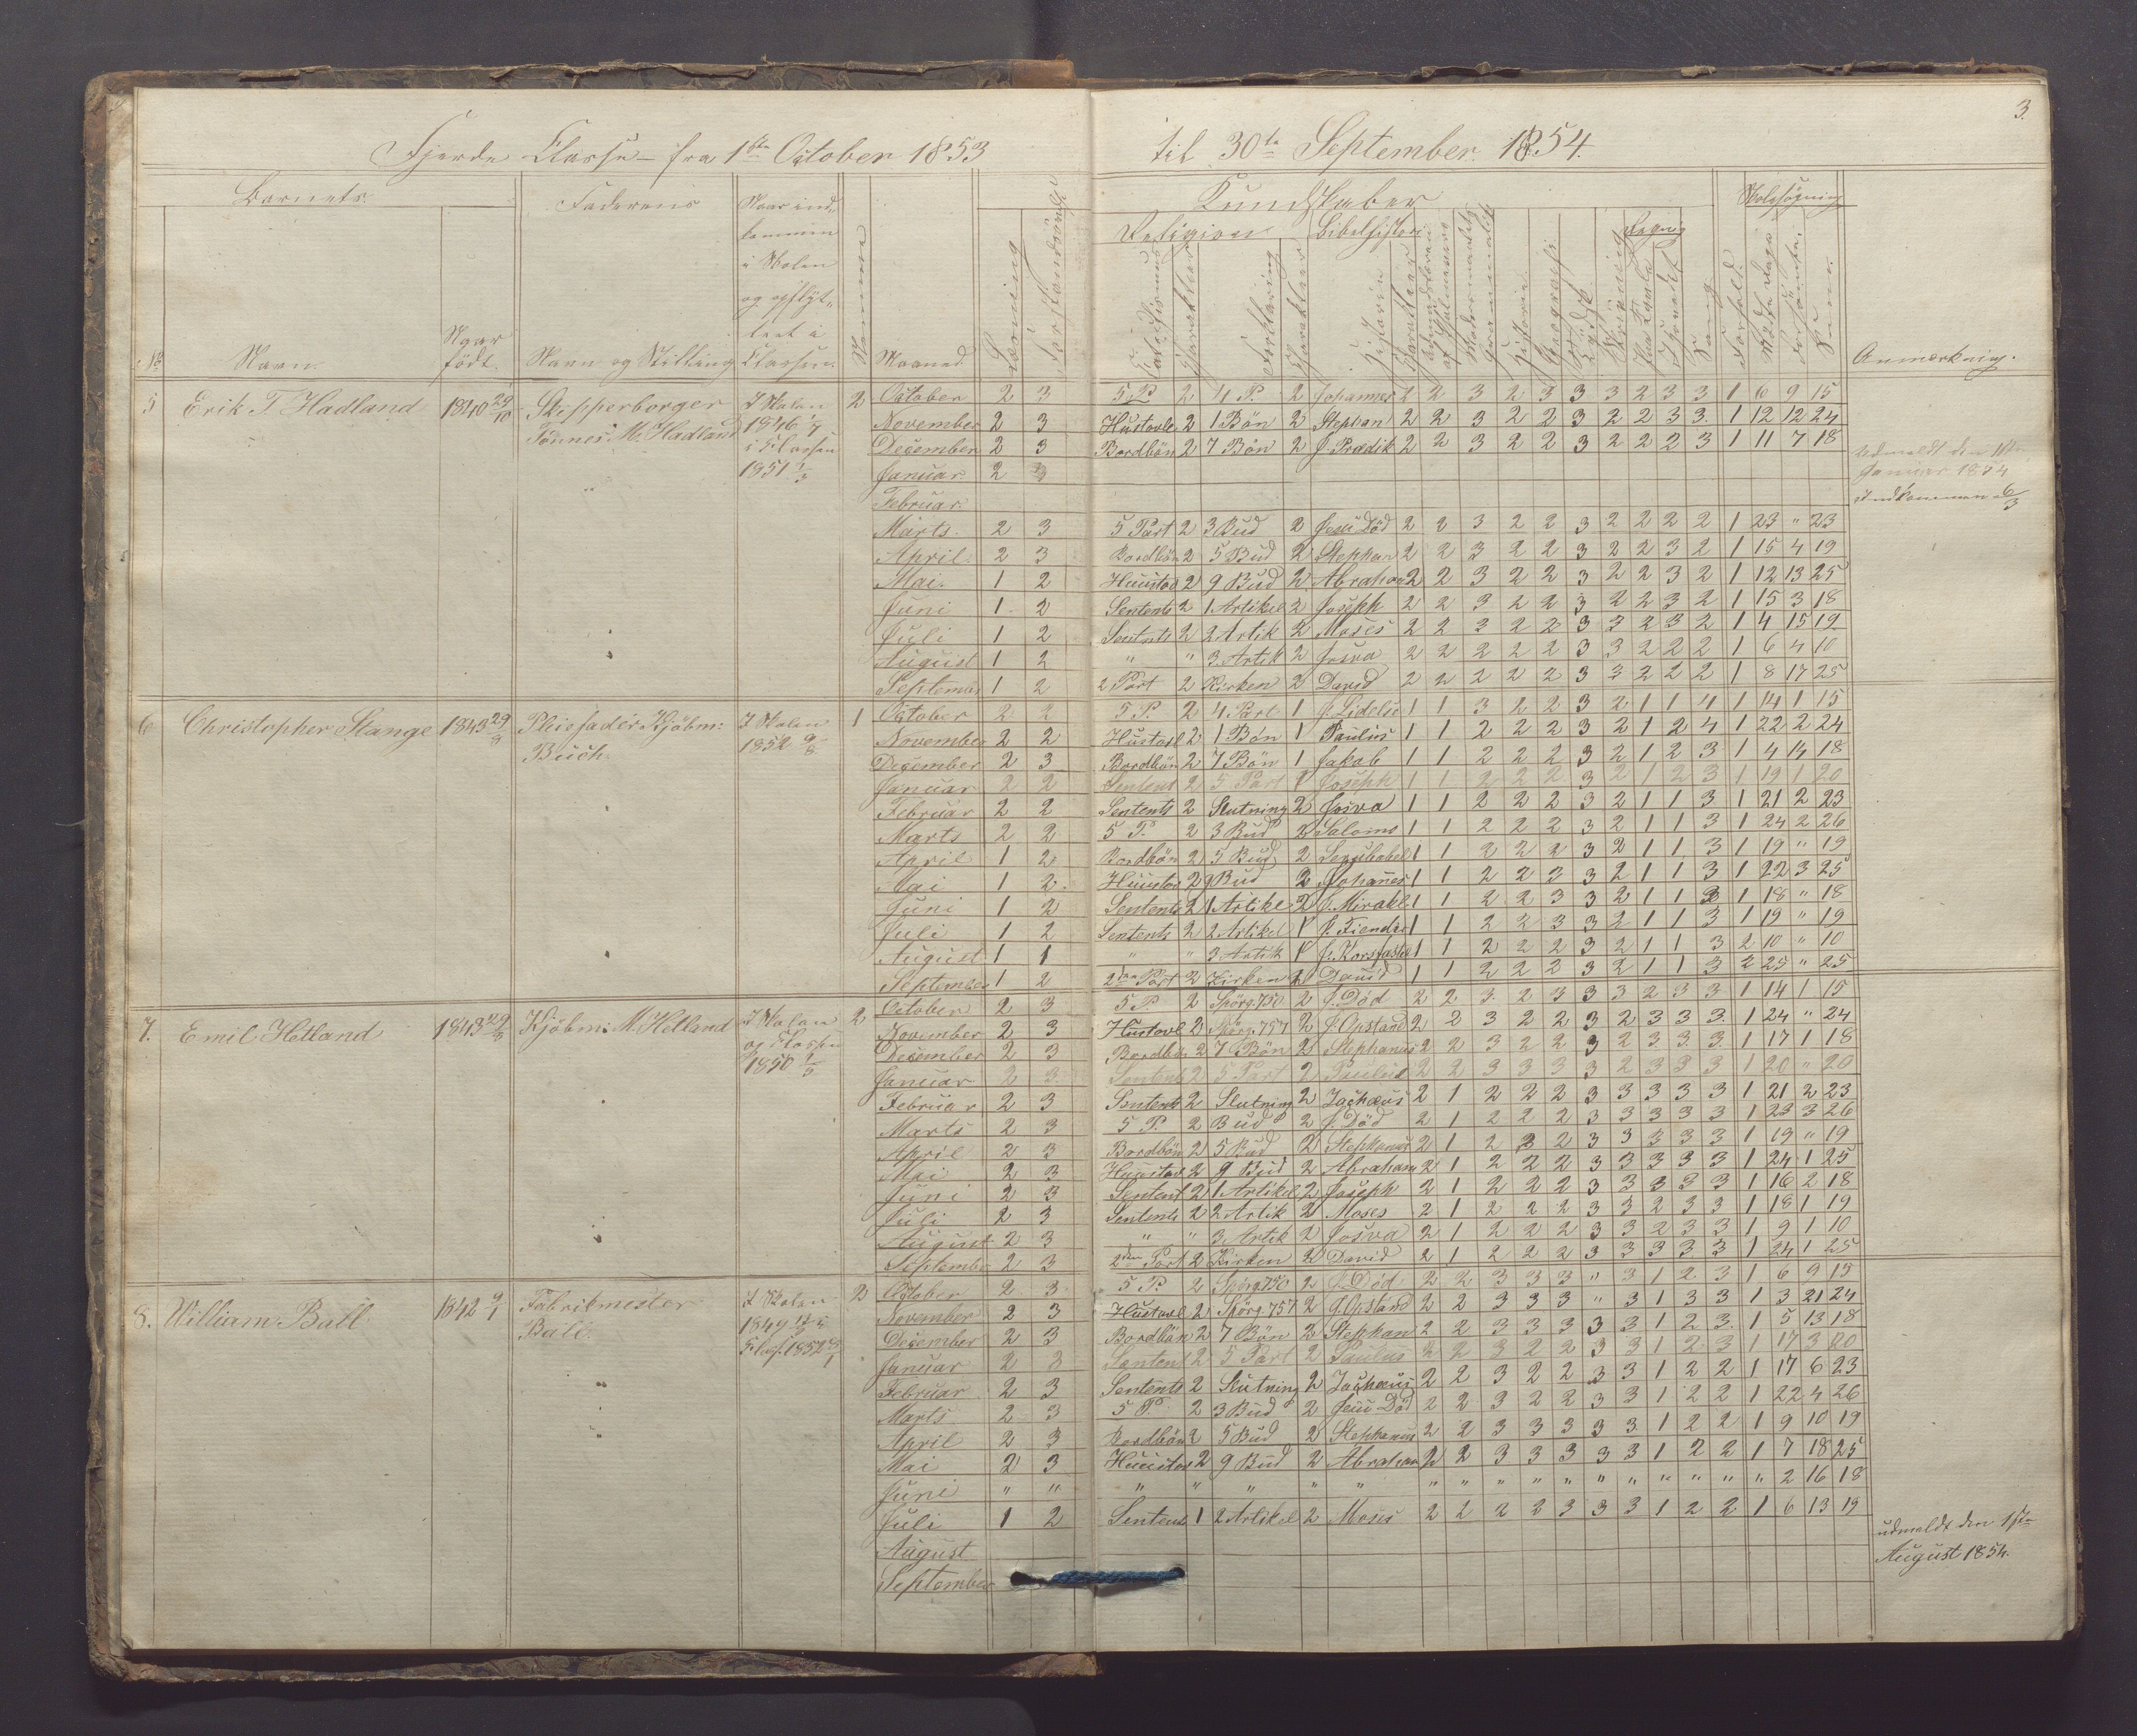 3.
Fjerde Classe - fra 1ste October 1853 til 30te September 1854.
Barnets Faderens Naar ind- Kundskaber Skolesøgning
kommen Religion Bibelhistorie Regning
i Skolen
og opflyt-
tet i
No Navn. Naar født. Navn og Stilling Classen. Maaned Læsning Charakteer Forklaring Charakteer Historie Geografie Sang Forhold. Mødte Dage Forsømte. Sum. Anmærkning.
5 Erik T Hadland 1840 29/10 Skipperborger I Skolen 2 October 2 3 5 P. 2 4 P. 2 Johannes 2 2 3 2 3 3 3 2 3 3 1 6 9 15
Tønnes M. Hadland 1846 1/7 November 2 3 Hustavle 2 1 Bön 2 Stephan 2 2 3 2 2 3 2 2 3 3. 1 12 12 24
i Classen December 2 3 Bordbön 2 7 Bön 2 J. Prædik 2 2 3 2 2 3 2 2 2 3 1 11 7 18
1851 1/3 Januar 2 3 Udmeldt den
Januar 1854
Februar Indkommen 6/3
Marts. 2 3 5 Part 2 3 Bud 2 Jesu Död 2 2 3 2 2 3 2 2 2 2 1 23 " 23
April. 2 3 Bordbön 2 5 Bud 2 Stephan 2 2 3 2 2 3 2 2 3 2 1 15 4 19
Mai. 1 2 Huustav 2 9 Bud 2 Abraham 2 2 3 2 2 3 2 2 3 2 1 12 13 25
Juni 1 2 Sentents 2 1 Artikel 2 Joseph 2 2 3 2 2 3 2 2 3 2 1 15 3 18
Juli 1 2 Sentents 2 2 Artik 2 Moses 2 2 3 2 2 3 3 2 3 2 1 4 15 19
August 1 2 " " 3 Artik 2 Josva 2 2 2 2 2 3 3 2 2 2 1 6 4 10
September 1 2 2 Part 2 Kirken 2 David 2 2 2 2 2 3 3 2 2 2 1 8 17 25
6 Christopher Stange 1843 29/8 Pleiefader Kjöbm: I Skolen 1 October 2 2 5 P. 2 4 Part 1 J. Lidelse 1 1 3 2 2 3 2 1 1 4 1 14 1 15
Buch. 1852 9/8 November 2 2 Hustavl 2 1 Bön 1 Paulus 1 1 2 2 2 3 2 1 2 4 1 22 2 24
December 2 3 Bordbön 2 7 Bön 1 Jakob 1 1 2 2 2 3 2 1 2 3 1 4 14 18
Januar 2 2 Sentent 2 5 Part 1 Joseph 1 1 2 2 2 3 2 1 2 3 1 19 1 20
Februar 2 2 Sentents 2 Slutning 2 Josva 1 1 2 2 2 3 2 1 1 3 1 21 2 23
Marts 2 2 5 P. 2 3 Bud 2 Salomo 1 1 2 2 2 3 2 1 1 3 1 24 2 26
April 1 2 Bordbön 2 5 Bud 2 Serubabel 1 1 2 2 2 3 2 1 1 3 1 19 " 19
Mai 1 2 Huustav 2 9 Bud 2 Johannes 1 1 2 2 3 3 2 1 1 3 1 22 3 25
Juni 1 2 Sentents 2 1 Artikel 2 J. Mirakl 1 1 2 2 3 3 2 1 1 3 1 18 " 18
Juli 1 2 Sentents 2 2 Artikel 1 J. Fiender 1 1 2 2 3 3 2 1 1 3 1 19 " 19
August 1 1 " " 3 Artik 1 J. Korsfæstel 1 1 2 2 2 3 2 1 1 3 2 10 " 10
September 1 2 2den Part 2 Kirken 2 David 1 1 2 2 2 3 2 1 1 3 2 25 " 25
7. Emil Hetland 1843 29/8 Kjöbm: M. Hetland I Skolen 2 October 2 3 5 P 2 Spörg. 750 2 J. Död 2 2 3 2 3 3 3 2 3 3 1 14 1 15
og Classen November 2 3 Hustavl 2 Spörg. 757 2 J. Opstand 2 2 3 2 2 3 2 3 3 3 1 24 " 24
1850 1/5 December 2 3 Bordbön 2 7 Bön 2 Stephanus 2 2 3 2 2 3 2 3 3 3 1 17 1 18
Januar 2 3 Sentents 2 5 Part 2 Paulus 2 2 3 3 3 3 2 3 3 3 1 20 " 20
Februar 2 3 Sentents 2 Slutning 2 Zachæus 2 1 2 2 2 3 3 3 3 3 1 21 2 23
Marts 2 3 5 P. 2 Bud 2 J. Död 2 1 2 2 2 3 3 3 3 3 1 23 3 26
April 2 3 Bordbön 2 5 Bud 2 Stephanus 2 1 2 2 2 3 3 3 3 3 1 19 " 19
Mai 2 3 Huustav 2 9 Bud 2 Abraham 2 1 2 2 2 3 3 3 3 3 1 24 1 25
Juni 2 3 Sentent 2 1 Artikel 2 Joseph 2 1 2 2 2 3 3 3 3 3 1 16 2 18
Juli 2 3 Sentents 2 2 Artik 2 Moses 2 1 2 2 2 3 3 2 3 3 1 18 1 19
August 2 3 " " 3 Artik 2 Josva 2 1 2 2 2 3 3 2 3 3 1 9 1 10
September 2 3 2den Part 2 Kirken 2 David 2 1 2 2 2 3 3 3 3 3 1 24 1 25
8. William Ball 1842 9/1 Fabrikmester I Skolen 2 October 2 3 5 P. 2 Spörg. 750 2 J. Död 2 2 3 3 3 " 3 1 2 3 1 6 9 15
Ball. 1849 November 2 3 Hustavl 2 Spörg. 757 2 J. Opstand 2 2 3 3 3 " 3 1 3 3 1 3 21 24
Class. 1852 December 2 3 Bordbön 2 7 Bön 2 Stephan 2 2 3 3 3 3 3 1 2 3 1 5 13 18
Januar 2 3 Sentent 2 5 Part 2 Paulus 2 2 3 2 2 3 3 1 2 3 1 17 3 20
Februar 2 3 Sentents 2 Slutning 2 Zachæus 2 2 3 2 2 3 3 1 2 2 1 17 6 23
Marts 2 3 5 P. 2 3 Bud 2 Jesu Död 2 2 3 2 2 3 3 1 2 2 1 22 4 26
April 2 3 Bordbön 2 5 Bud 2 Stephanus 2 2 3 3 3 3 3 1 2 2 1 9 10 19
Mai 2 3 Huustav 2 9 Bud 2 Abraham 2 2 3 3 3 3 3 1 2 2 1 7 18 25
Juni " " " " " " " " " " " " " " " " " " 2 16 18
Juli 1 2 Sentent 1 2 Artikel 2 Moses 2 2 2 2 3 3 3 1 2 2 1 6 13 19
August udmeldt den 1ste
September August 1854.